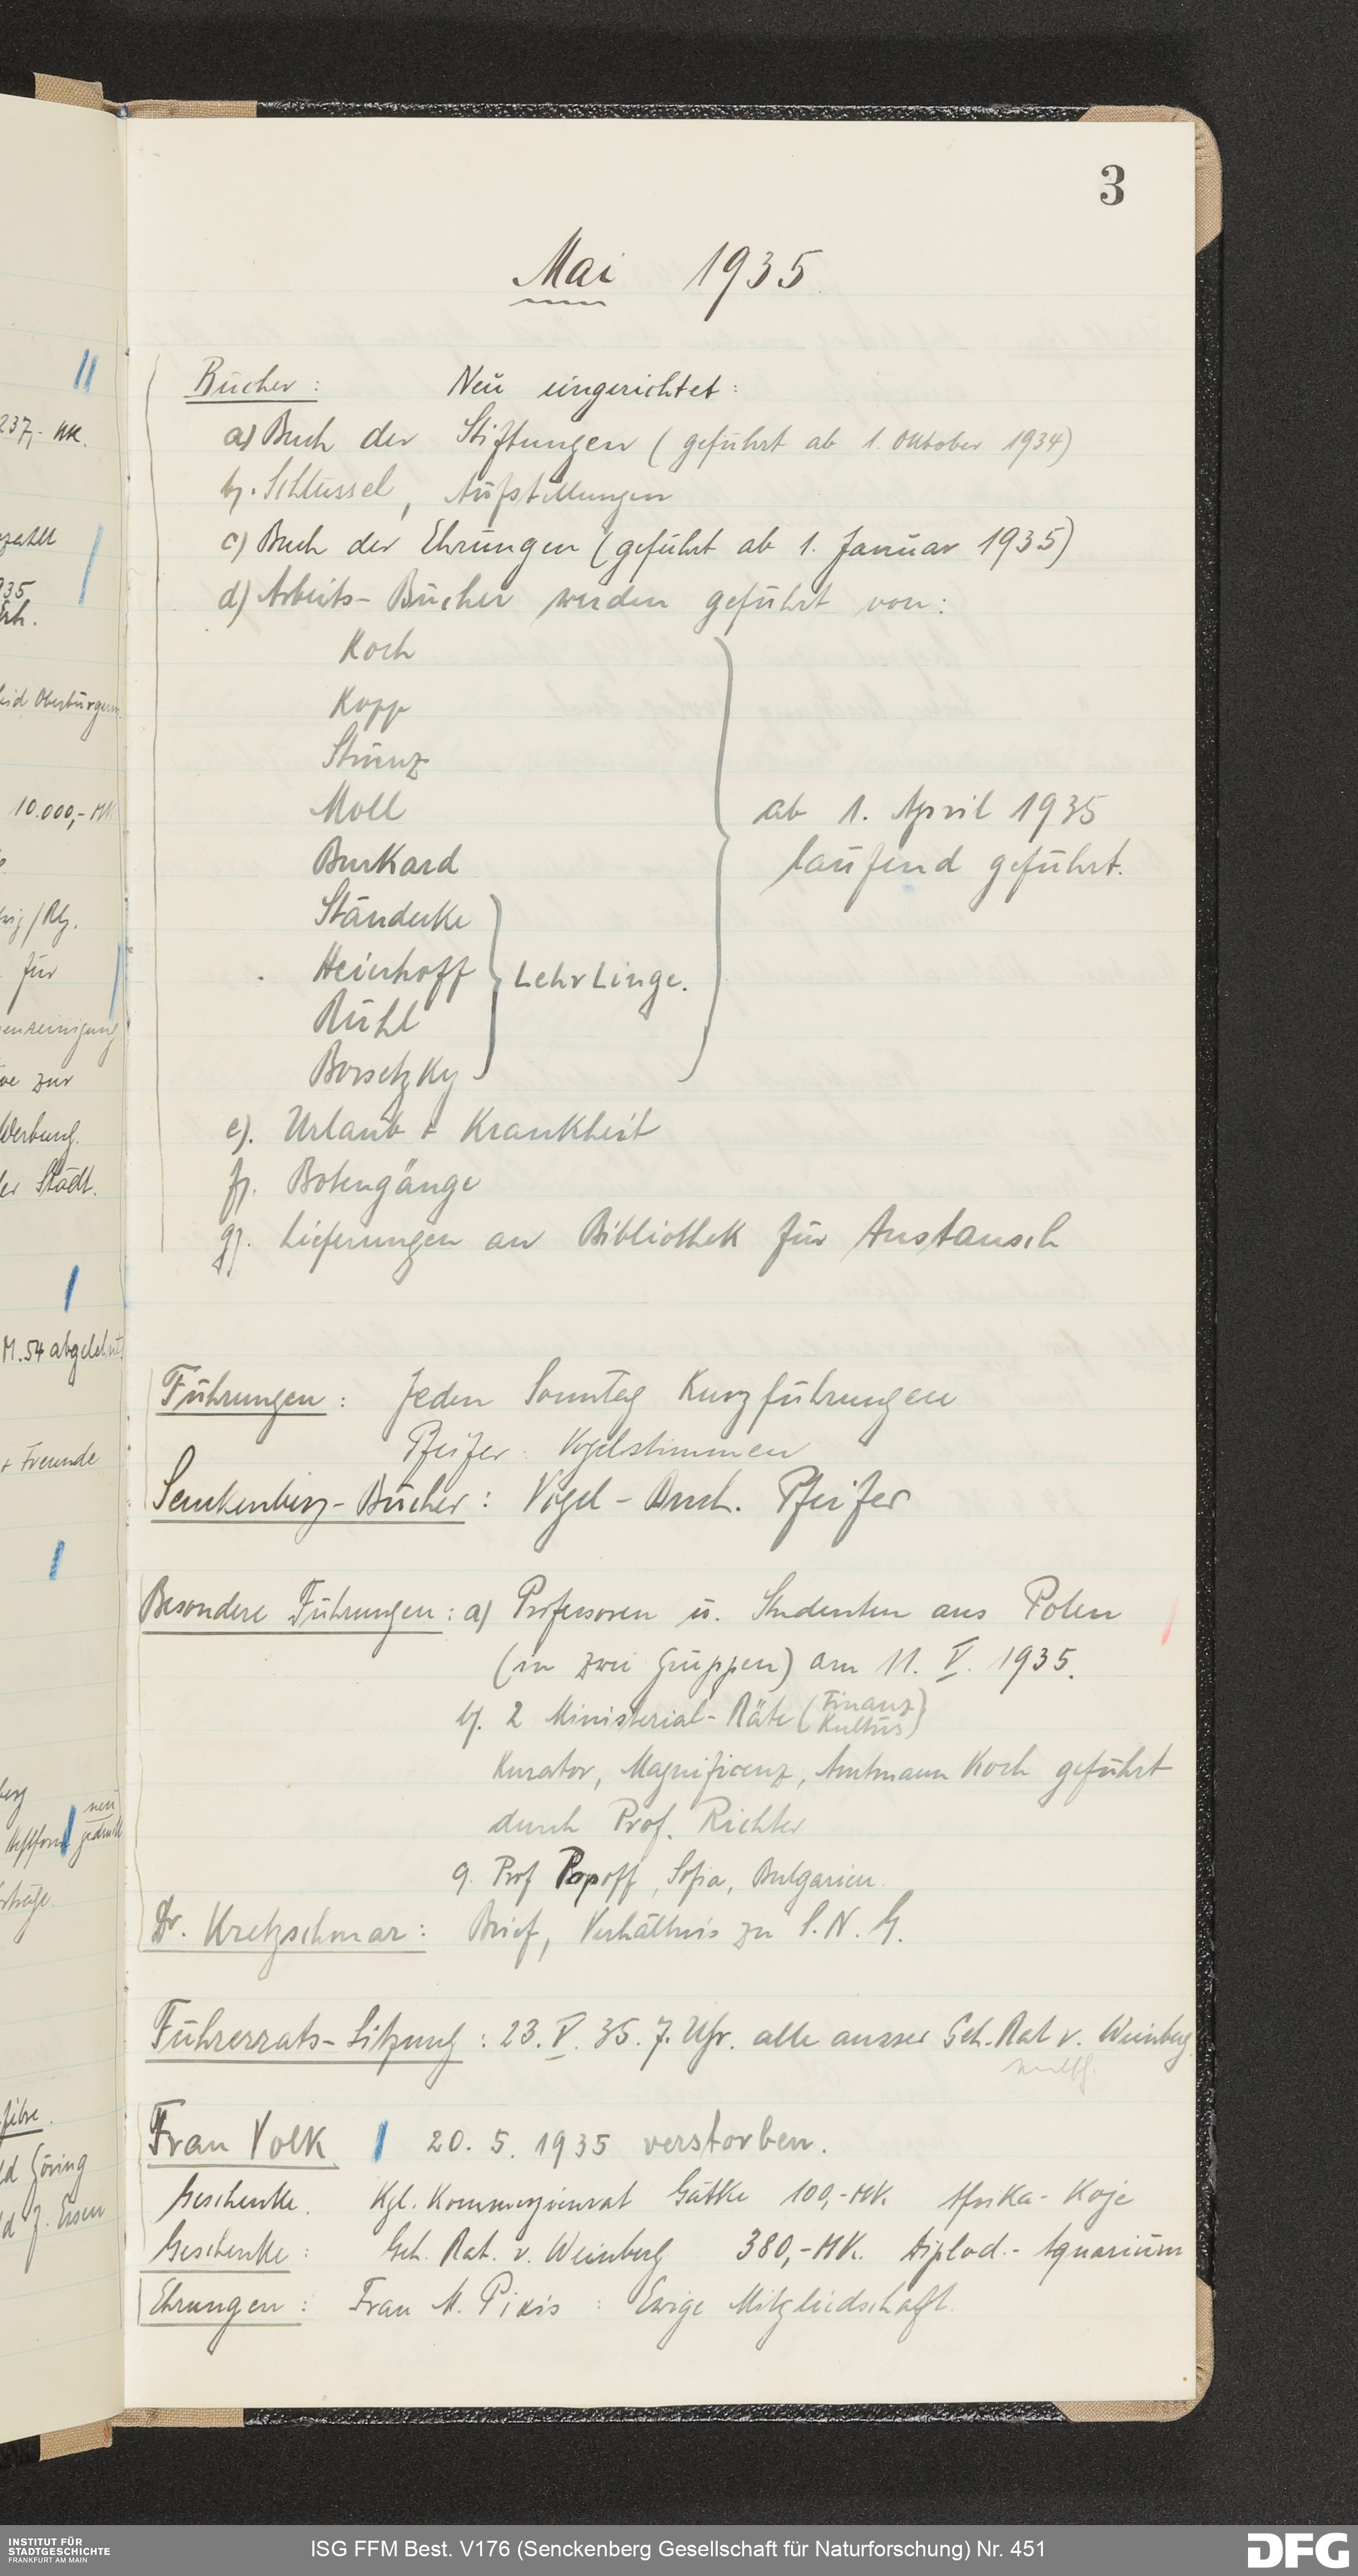 3
Mai 1935
Bücher: Neu eingerichtet:
a) Buch der Stiftungen (geführt ab 1. Oktober 1934)
b). Schlüssel, Aufstellungen
c) Buch der Ehrungen (geführt ab 1. Januar 1935)
d) Arbeits-Bücher werden geführt von:
Koch
Kopp
Strunz
Moll
ab 1. April 1935
Burkard
laufend geführt.
Ständecke
Heierhoff
Lehrlinge.
Rühl
Borsetzky
e). Urlaub + Krankheit
f). Botengänge
g). Lieferungen an Bibliothek für Austausch
Führungen: Jeden Sonntag Kurzführungen
Pfeifer: Vogelstimmen
Senckenberg-Bücher: Vogel-Buch. Pfeifer
Besondere Führungen: a) Professoren u. Studenten aus Polen
(in zwei Gruppen) am 11. V. 1935.
b). 2 Ministerial-Räte (Finanz
Kultus)
Kurator, Magnificenz, Amtmann Koch geführt
durch Prof. Richter
c). Prof Popoff, Sofia, Bulgarien.
Dr. Kretzschmar: Brief, Verhältnis zu S.N.G.
Führerrats-Sitzung: 23. V. 35. 7. Uhr. alle ausser Geh. Rat v. Weinberg
Frau Volk 20. 5. 1935 verstorben.
Geschenke. Kgl. Kommerzienrat Gätke 100,-MK. Afrika-Koje
Geschenke: Geh. Rat. v. Weinberg 380,-MK. Diplod.-Aquarium
Ehrungen: Frau M. Pixis: Ewige Mitgliedschaft.
237,- MK.
10.000,- MK
für
zur
Werbung.
der Städt.
M. 54 abgelehnt
+ Freunde
neu
Göring
INSTITUT FÜR
STADTGESCHICHTE
FRANKFURT AM MAIN
ISG FFM Best. V176 (Senckenberg Gesellschaft für Naturforschung) Nr. 451
DFG